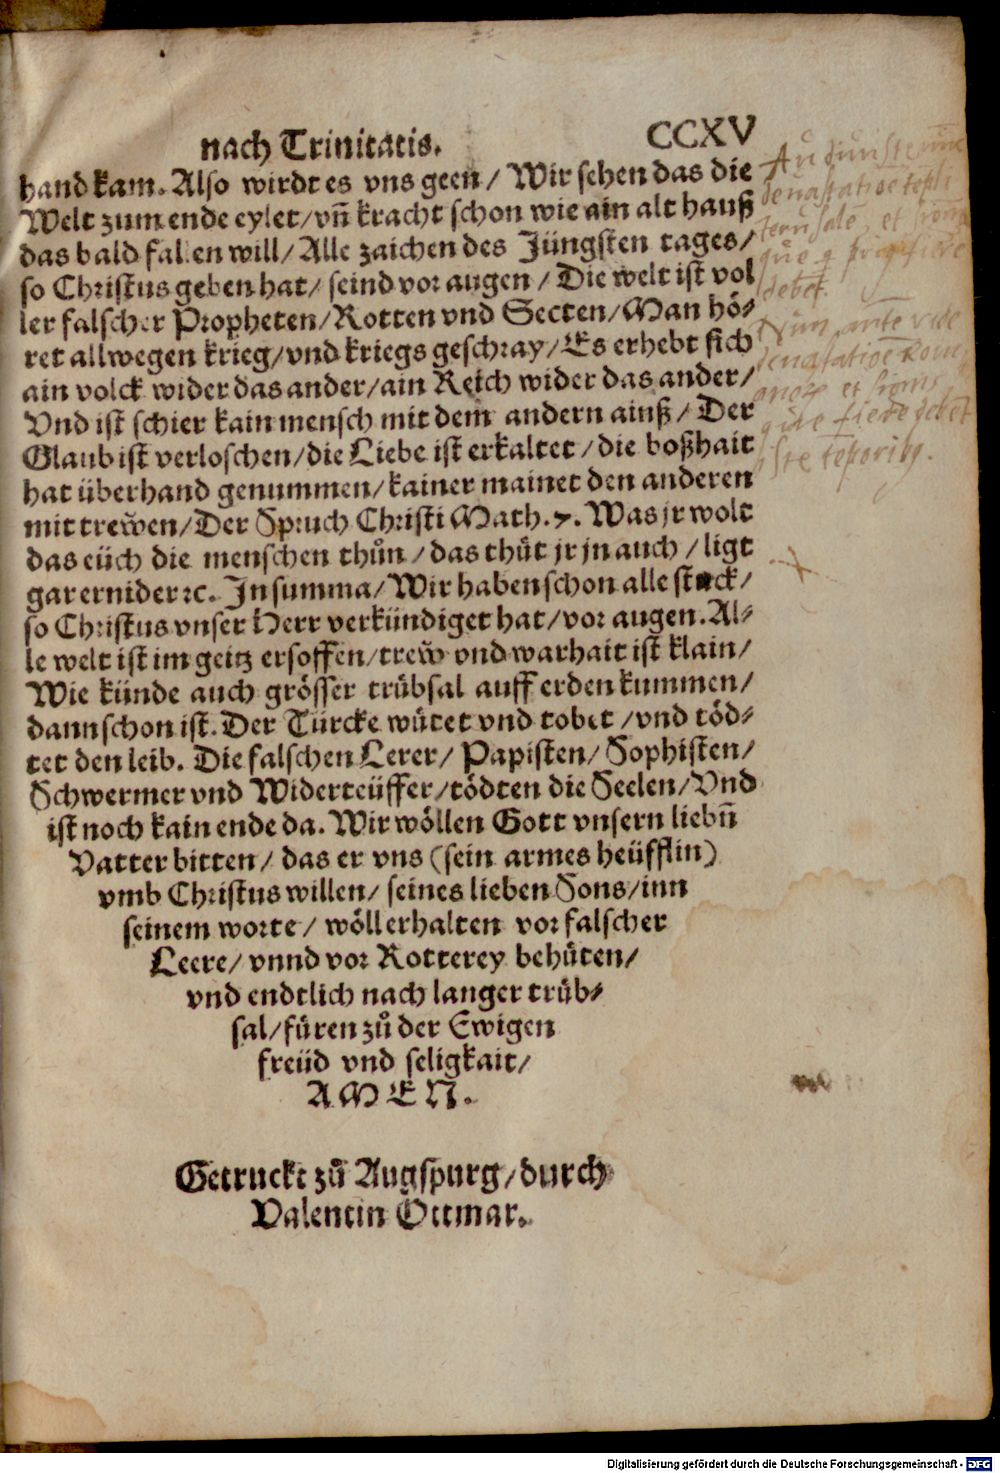 nach Trinitatis.
CCXV
hand kam. Also wirdt es vns geen / Wir sehen das die
Welt zum ende eylet / vn̄ kracht schon wie ain alt hauß
das bald fallen will / Alle zaichen des Jüngsten tages /
so Christus geben hat / seind vor augen / Die welt ist vol
ler falscher Propheten / Rotten vnd Secten / Man hö⸗
ret allwegen krieg / vnd kriegs geschray / Es erhebt sich
ain volck wider das ander / ain Reich wider das ander /
Vnd ist schier kain mensch mit dem andern ainß / Der
Glaub ist verloschen / die Liebe ist erkaltet / die boßhait
hat überhand genummen / kainer mainet den anderen
mit trew̆en / Der Spruch Christi Math. 7. Was jr wolt
das eüch die menschen thůn / das thüt jr jn auch / ligt
gar ernider ꝛc. In summa / Wir haben schon alle stuck /
so Christus vnser Herr verkündiget hat / vor augen. Al⸗
le welt ist im geitz ersoffen / trew̆ vnd warhait ist klain /
Wie künde auch grösser trübsal auff erden kummen /
dann schon ist. Der Türcke wütet vnd tobet / vnd töd⸗
tet den leib. Die falschen Lerer / Papisten / Sophisten /
Schwermer vnd Widerteüffer / tödten die Seelen / Vnd
ist noch kain ende da. Wir wöllen Gott vnsern liebn̄
Vatter bitten / das er vns (sein armes heüfflin)
vmb Christus willen / seines lieben Sons / inn
seinem worte / wöll erhalten vor falscher
Leere / vnnd vor Rotterey behüten /
vnd endtlich nach langer trüb⸗
sal / füren zů der Ewigen
freüd vnd seligkait /
AMEN.
Getruckt zů Augspurg / durch
Valentin Ottmar.
debet.
Digitalisierung gefördert durch die Deutsche Forschungsgemeinschaft - DFG